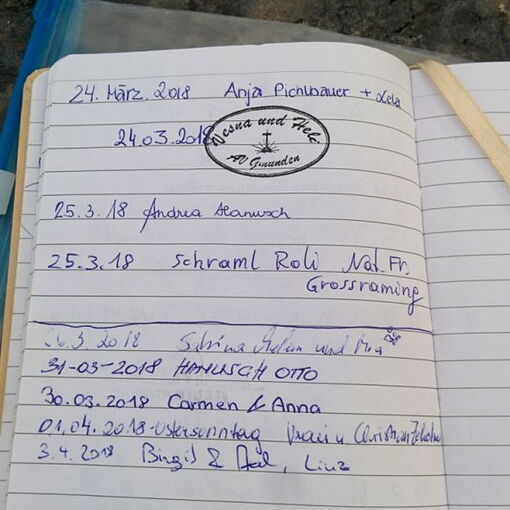 24. März. 2018 Anja Pichlbauer + Lela
24.03.2018
Vesna und Heli
AV Gmunden
25.3.18 Andrea Hanusch
25.3.18 Schraml Roli Nat. Fr.
Grossraming
26.3.2018 Sabrina und
31-03-2018 HANUSCH OTTO
30.03.2018 Carmen & Anna
01.04.2018-Ostersonntag u. Christian
3.4.2018 Birgit & Linz